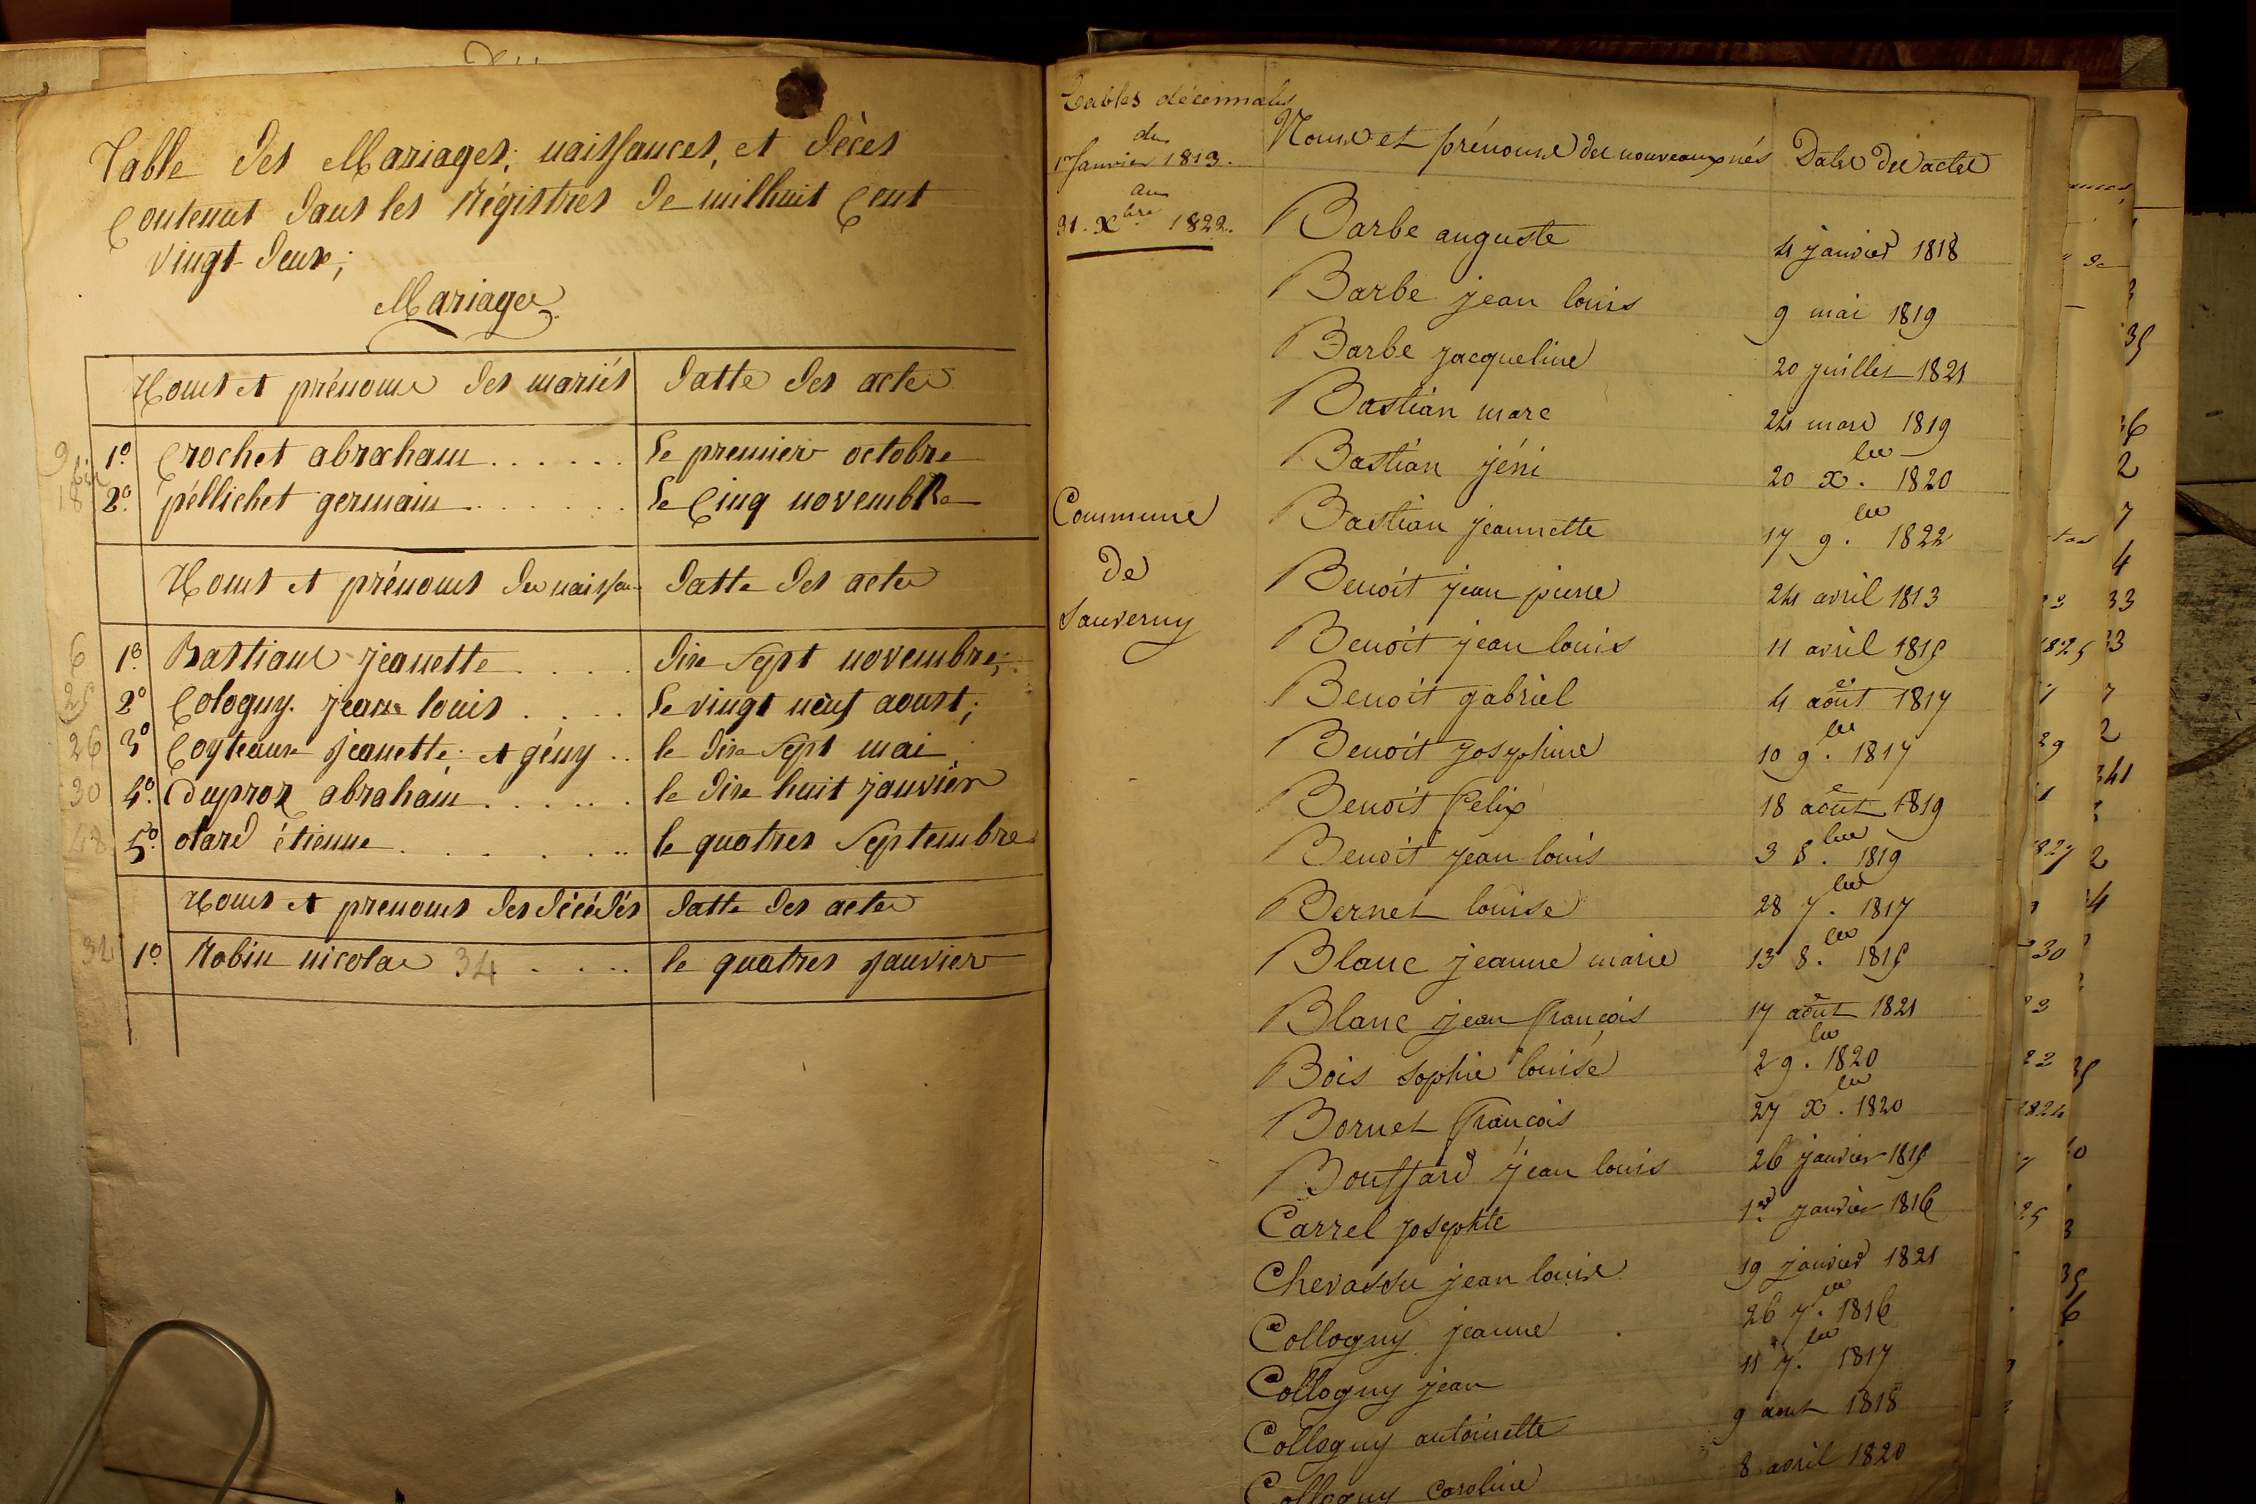 Table des Mariages, naissances, et décès
Contenut dans les Régistres de milhuit Cent
vingt deux;
Mariages
Noms et prénoms des mariés datte des actes
1º Crochet abraham . . . . . . le premier octobre
2º pèllichet germain . . . . . . le Cinq novembre
Noms et prénoms des naissan datte des actes
6 1º Bastiant jeanette . . . . dix sept novembre;
25 2º Cologny jean louis . . . . le vingt neuf aoust;
26 3º Coyteaux jeanette et gény . . le dix sept mai
30 4º duproz abraham . . . . . . le dix huit janvier
48 5º otard étienne . . . . . . . le quatres septembre
Noms et prenoms des décédés datte des actes
32 1º Robin nicolas 34 . . . . le quatres janvier
Tables décennales
du
1er Janvier 1813.
au
31. Xbre 1822.
Commune
de
Sauverny
Noms et prénoms des nouveaux nés Dates des actes
Barbe auguste 4 janvier 1818
Barbe jean louis 9 mai 1819
Barbe jacqueline 20 juillet 1821
Bastian marc 24 mars 1819
Bastian jéni 20 x.bre 1820
Bastian jeannette 17 9.bre 1822
Benoit jean pierre 24 avril 1813
Benoit jean louis 11 avril 1815
Benoit gabriel 4 août 1817
Benoit josephine 10 9.bre 1817
Benoit félix 18 août 1819
Benoit jean louis 3 8.bre 1819
Bernet louise 28 7.bre 1817
Blanc jeanne marie 13 8.bre 1815
Blanc jean françois 17 août 1821
Bois sophie louise 2 9.bre 1820
Bornet françois 27 x.bre 1820
Bouffard jean louis 26 janvier 1815
Carrel josephte 1er janvier 1816
Chevassu jean louis 19 janvier 1821
Collogny jeanne 26 7.bre 1816
Collogny jean 11 7.bre 1817
Collogny antoinette 9 aout 1818
Collogny caroline 8 avril 1820